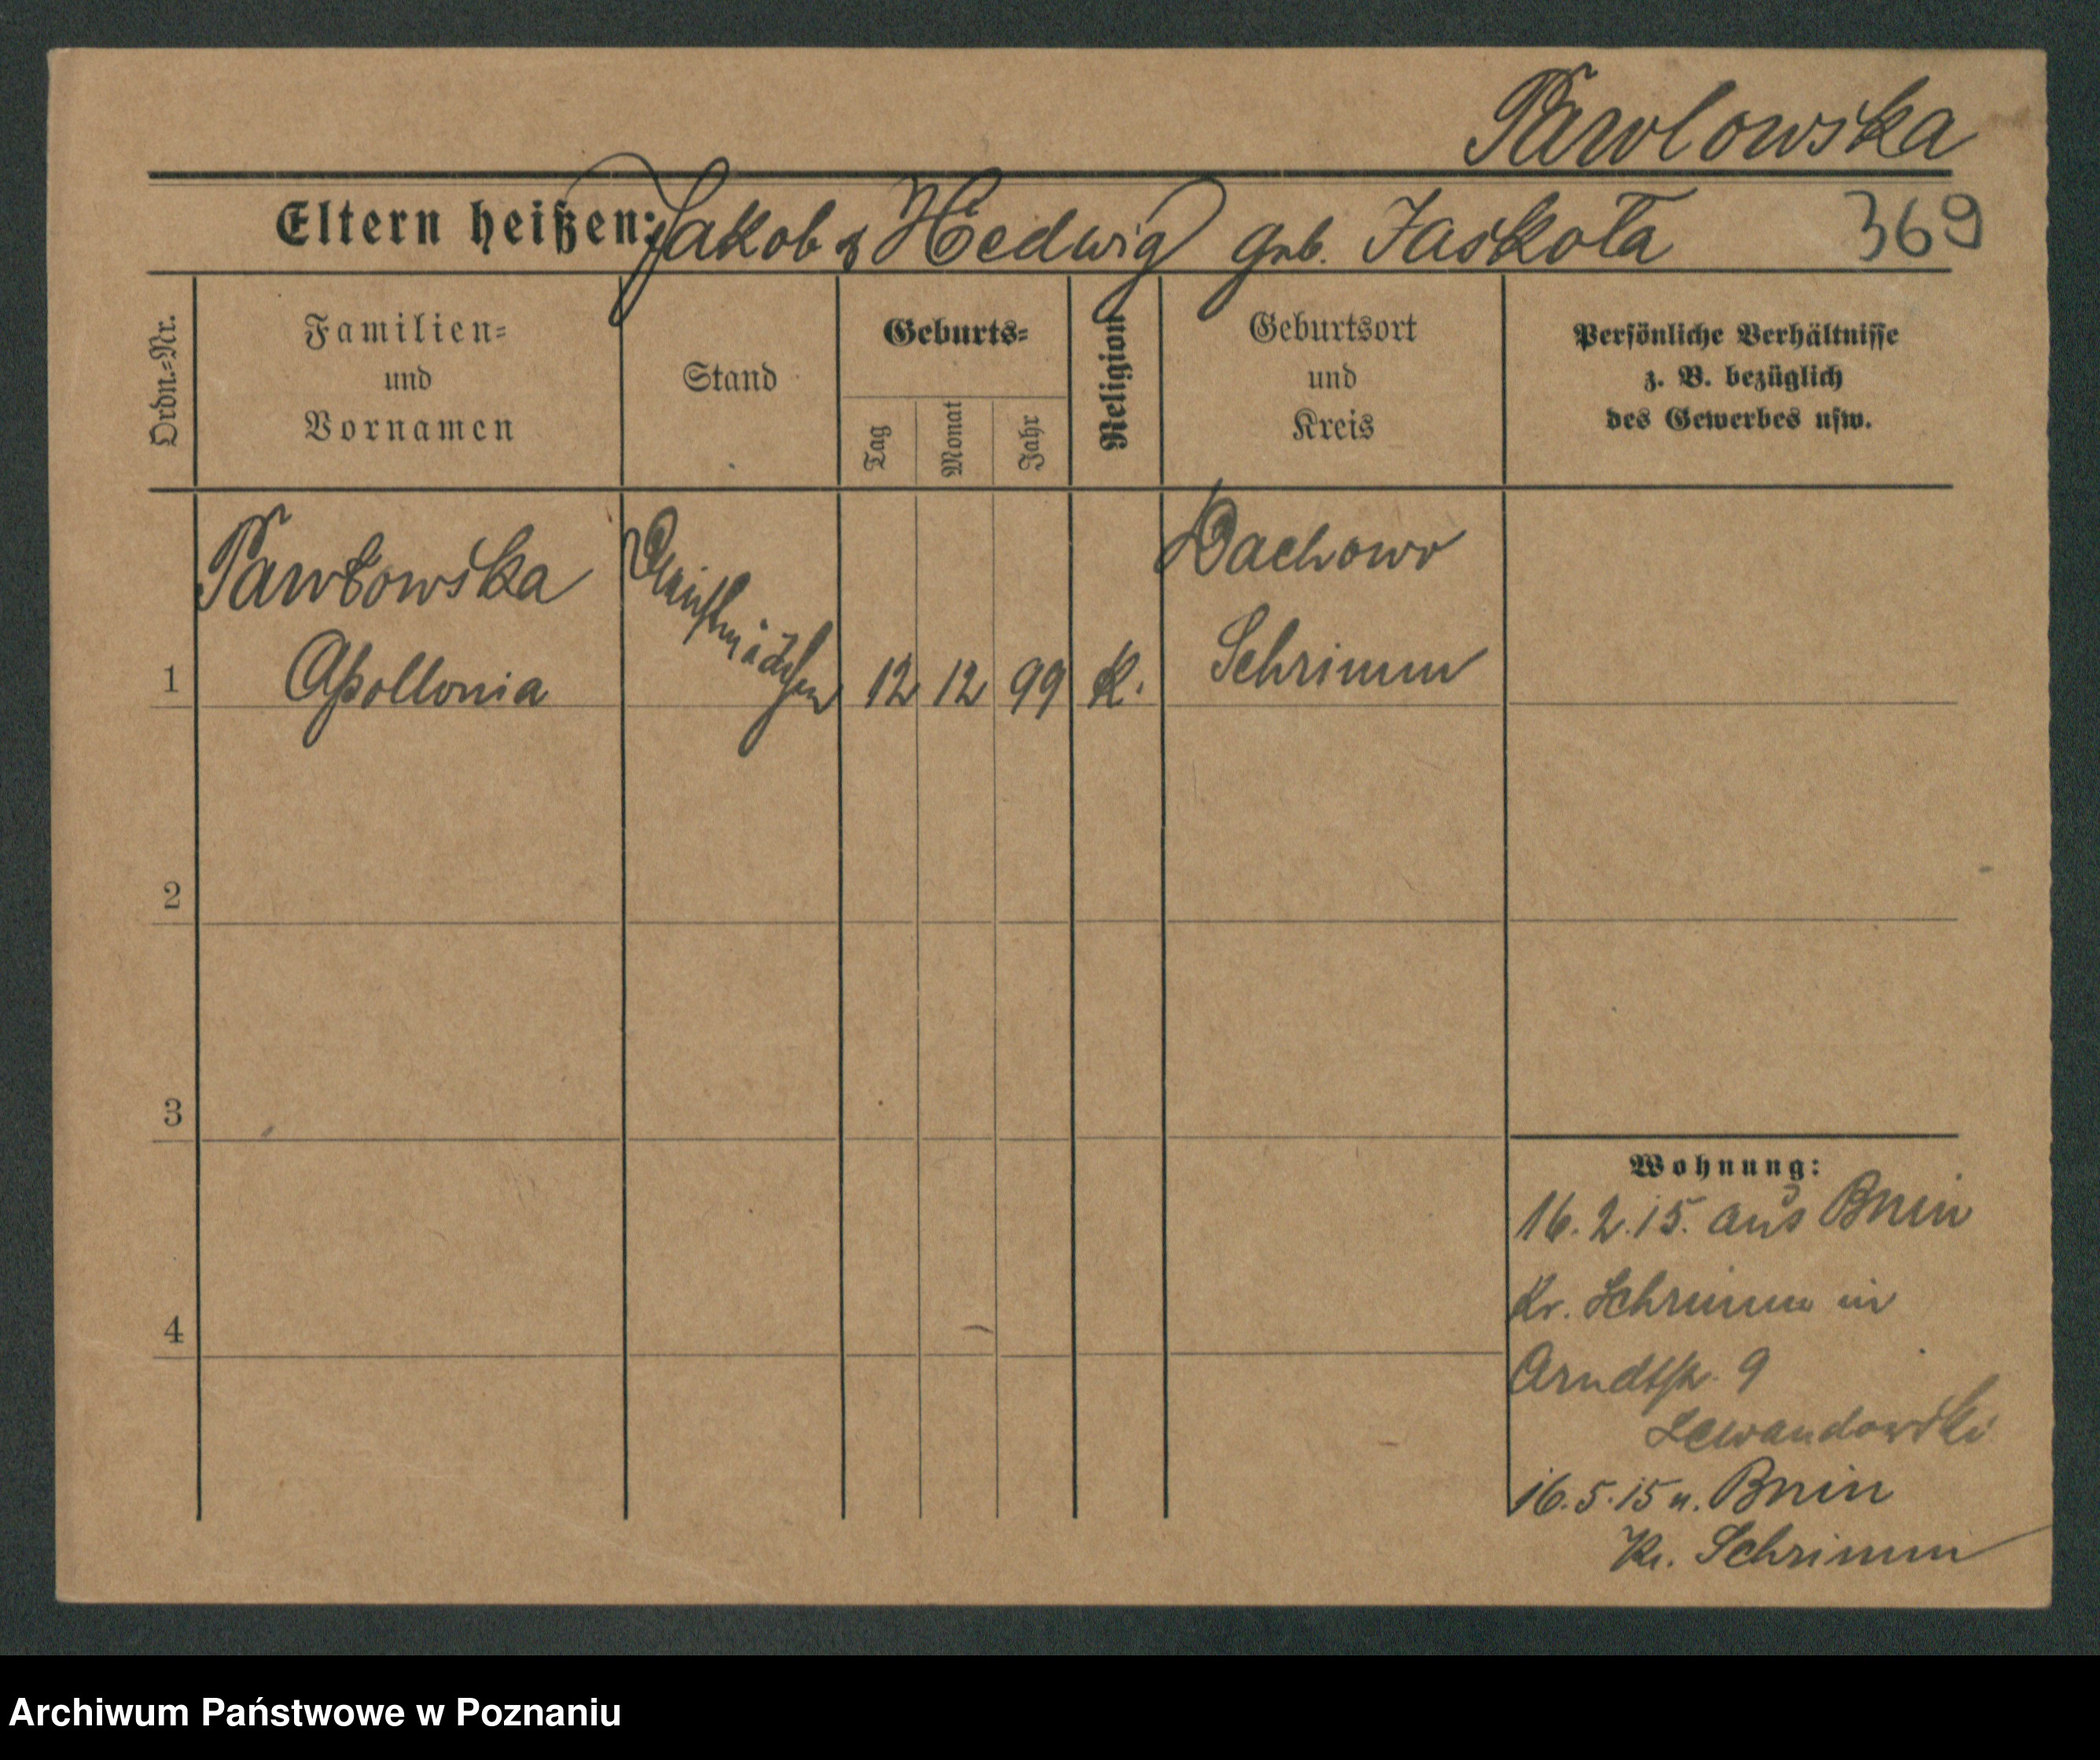 Pawlowska
Eltern heißen: Jakob & Hedwig geb. Jaskoła
369
Ordn.=Nr.
Familien=
und
Vornamen
Stand
Geburts=
Tag
Monat
Jahr
Religion
Geburtsort
und
Kreis
Persönliche Verhältnisse
z. B. bezüglich
des Gewerbes usw.
1
Pawłowska
Apollonia
12
12
99
K.
Dachowo
Schrimm
2
3
4
Wohnung:
16.2.15. aus Bnin
Kr. Schrimm in
Arndtstr. 9
Lewandowski
16.5.15 n. Bnin
Kr. Schrimm
Archiwum Państwowe w Poznaniu